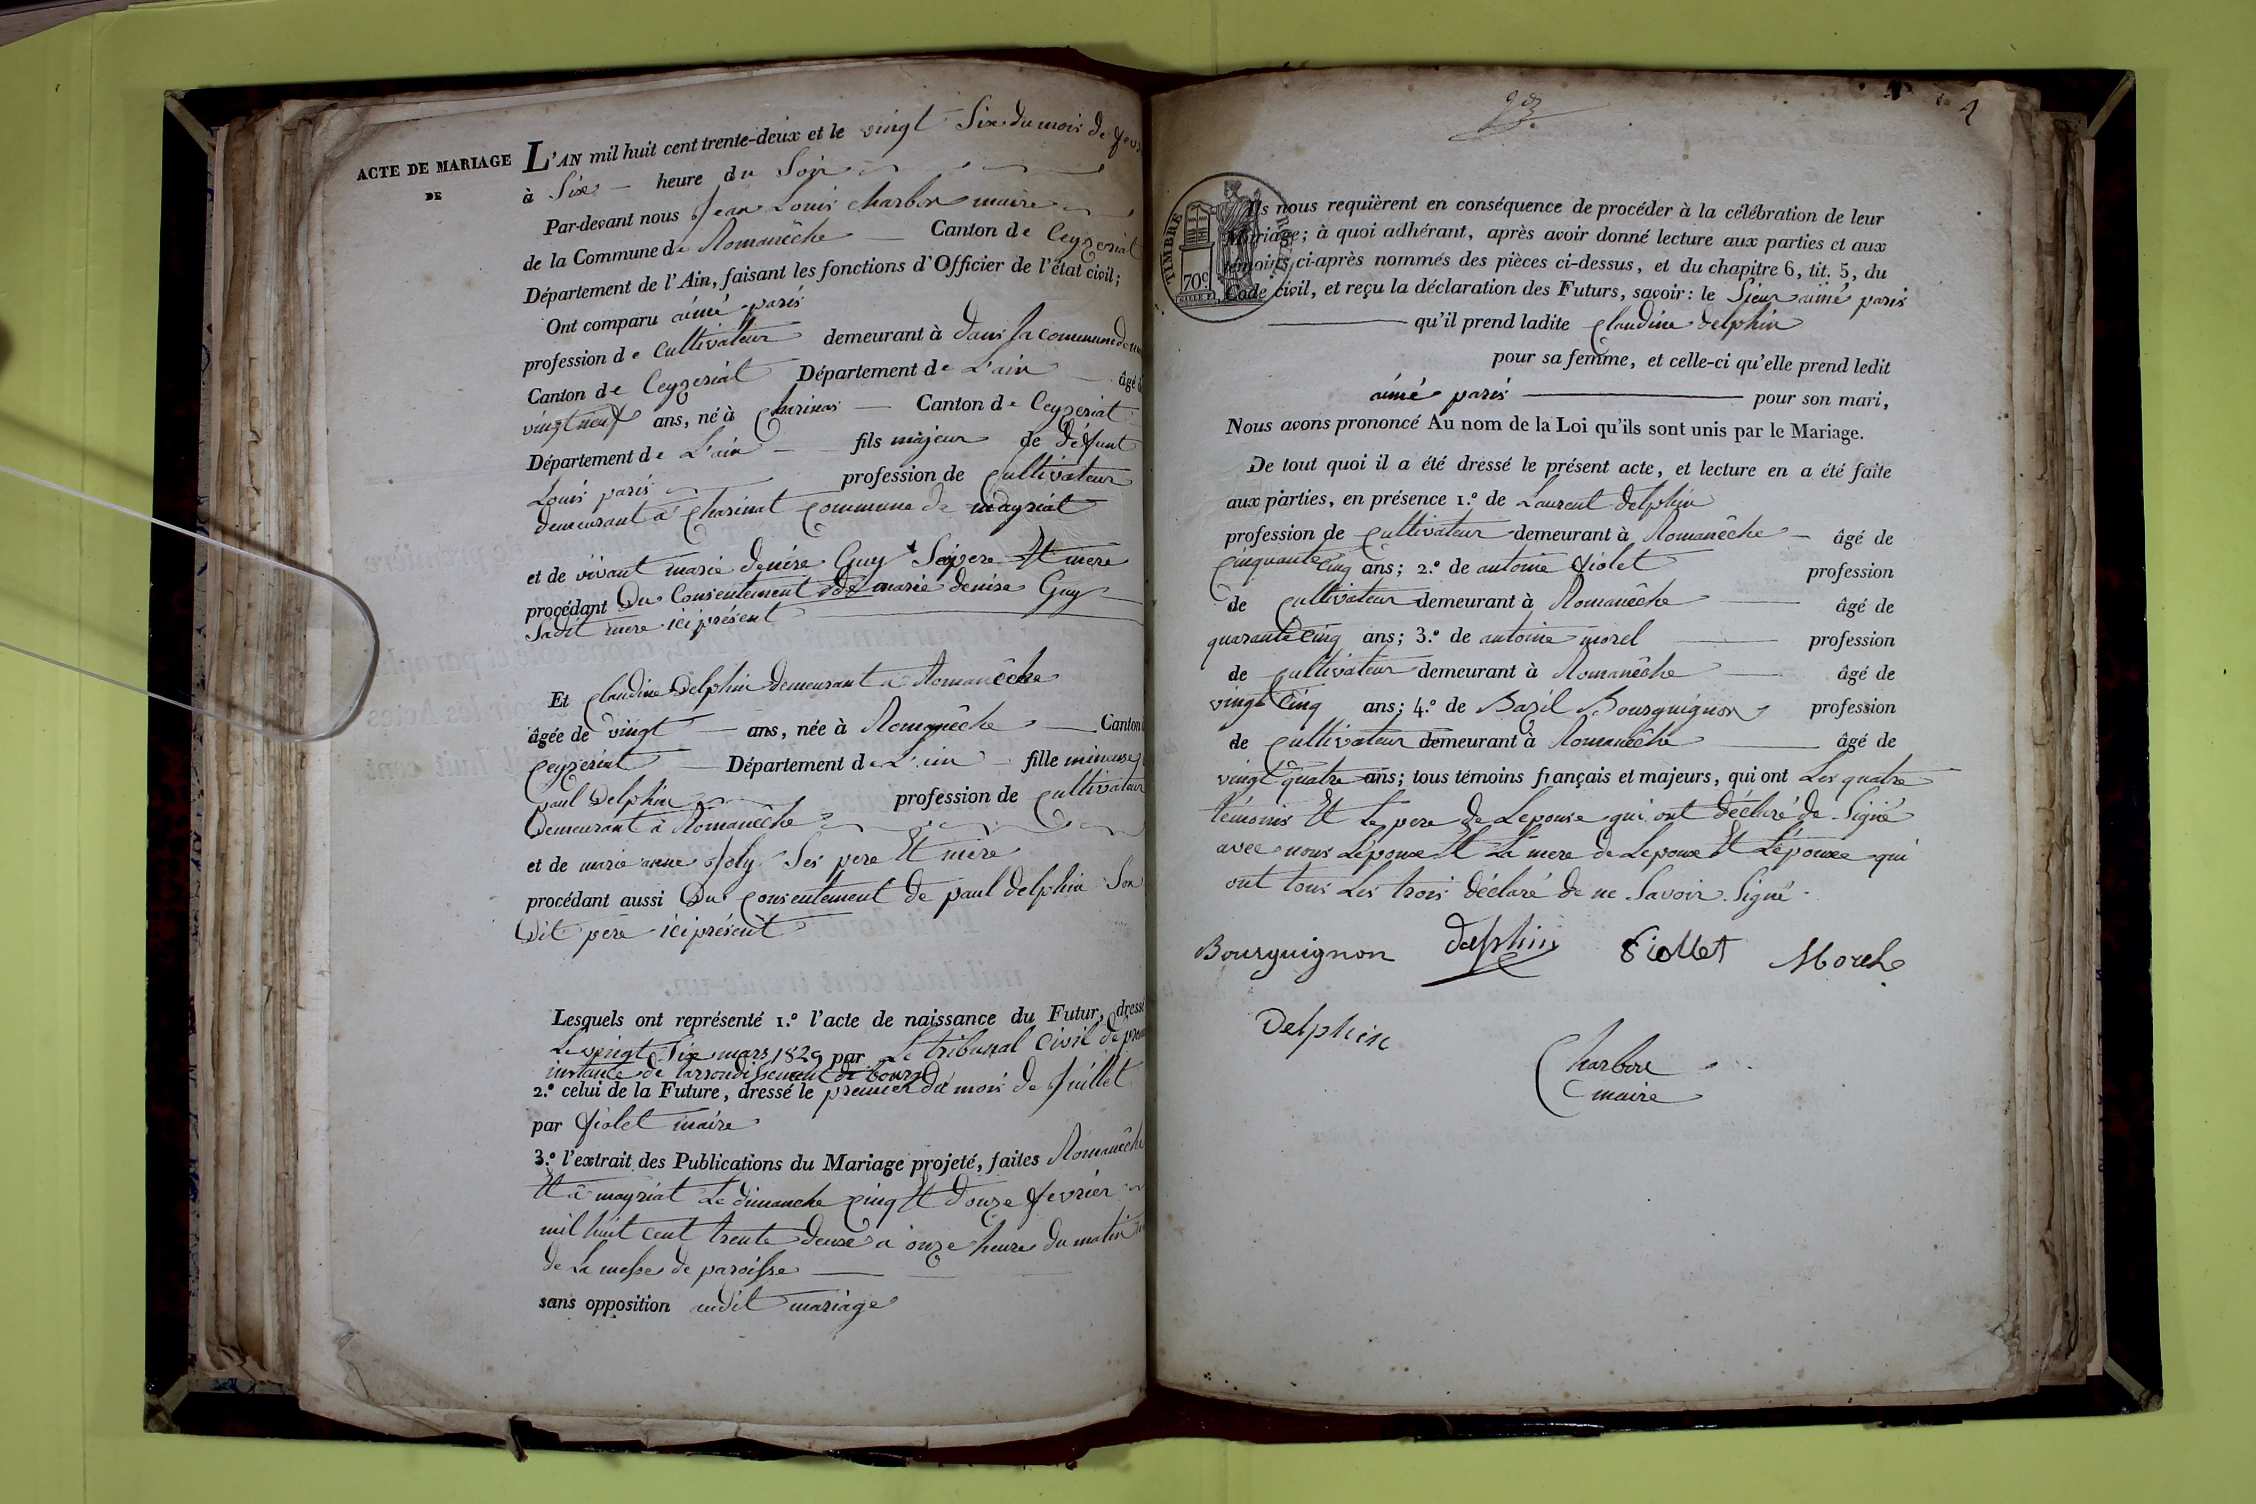 ACTE DE MARIAGE
DE
L'AN mil huit cent trente-deux et le vingt Six du mois de
à Six heure du Soir
Par-devant nous Jean Louis charbon maire
de la Commune de Romanêche Canton de Ceyzeriat
Département de l'Ain, faisant les fonctions d'Officier de l'état civil;
Ont comparu aimé paris
profession de Cultivateur demeurant à dans la commune de
Canton de Ceyzeriat Département de L'ain âgé
vingt neuf ans, né à Charinas Canton de Ceyzeriat
Département de L'ain fils majeur de défunt
Louis paris profession de Cultivateur
demeurant à Charinat Commune de mayriat
et de vivant marie denise Guy Ses pere Et mere
procédant Du Consentement de marie denise Guy
Sadit mere ici présent
Et Claudine Delphin demeurant à Romanêche
âgée de vingt ans, née à Romanêche Canton
Ceyzeriat Département de L'ain fille mineuse
paul Delphin profession de Cultivateur
Demeurant à Romanêche
et de marie anne Joly Ses pere Et mère
procédant aussi Du Consentement de paul delphin Son
Dit père ici présent
Lesquels ont représenté 1.º l'acte de naissance du Futur, dressé
Le vingt Six mars 1829 par Le tribunal Civil de
instance de larrondissement de bourg
2.º celui de la Future, dressé le premier du mois de Juillet
par fiolet maire
3.º l'extrait des Publications du Mariage projeté, faites Romanêche
Et à mayriat Le dimanche Cinq Et douze fevrier
mil huit cent trente deux à onze heure du matin
de La messe de paroisse
sans opposition audit mariage
TIMBRE
70c
Ils nous requièrent en conséquence de procéder à la célébration de leur
Mariage; à quoi adhérant, après avoir donné lecture aux parties et aux
témoins, ci-après nommés des pièces ci-dessus, et du chapitre 6, tit. 5, du
Code civil, et reçu la déclaration des Futurs, savoir: le Sieur aimé paris
qu'il prend ladite Claudine delphin
pour sa femme, et celle-ci qu'elle prend ledit
aimé paris pour son mari,
Nous avons prononcé Au nom de la Loi qu'ils sont unis par le Mariage.
De tout quoi il a été dressé le présent acte, et lecture en a été faite
aux parties, en présence 1.º de Laurent delphin
profession de Cultivateur demeurant à Romanêche âgé de
Cinquante Cinq ans; 2.º de antoine fiolet profession
de Cultivateur demeurant à Romanêche âgé de
quarante Cinq ans; 3.º de antoine morel profession
de Cultivateur demeurant à Romanêche âgé de
vingt Cinq ans; 4.º de Bazil Bourguignon profession
de Cultivateur demeurant à Romanêche âgé de
vingt quatre ans; tous témoins français et majeurs, qui ont Les quatre
témoins Et Le pere de Lepouse qui ont déclaré de Signé
avec nous Lépoux Et La mere de Lepoux Et Lépouse qui
ont tous Les trois déclaré de ne Savoir Signé
Bourguignon delphin fiollet Morel
Delphin
Charbon
maire